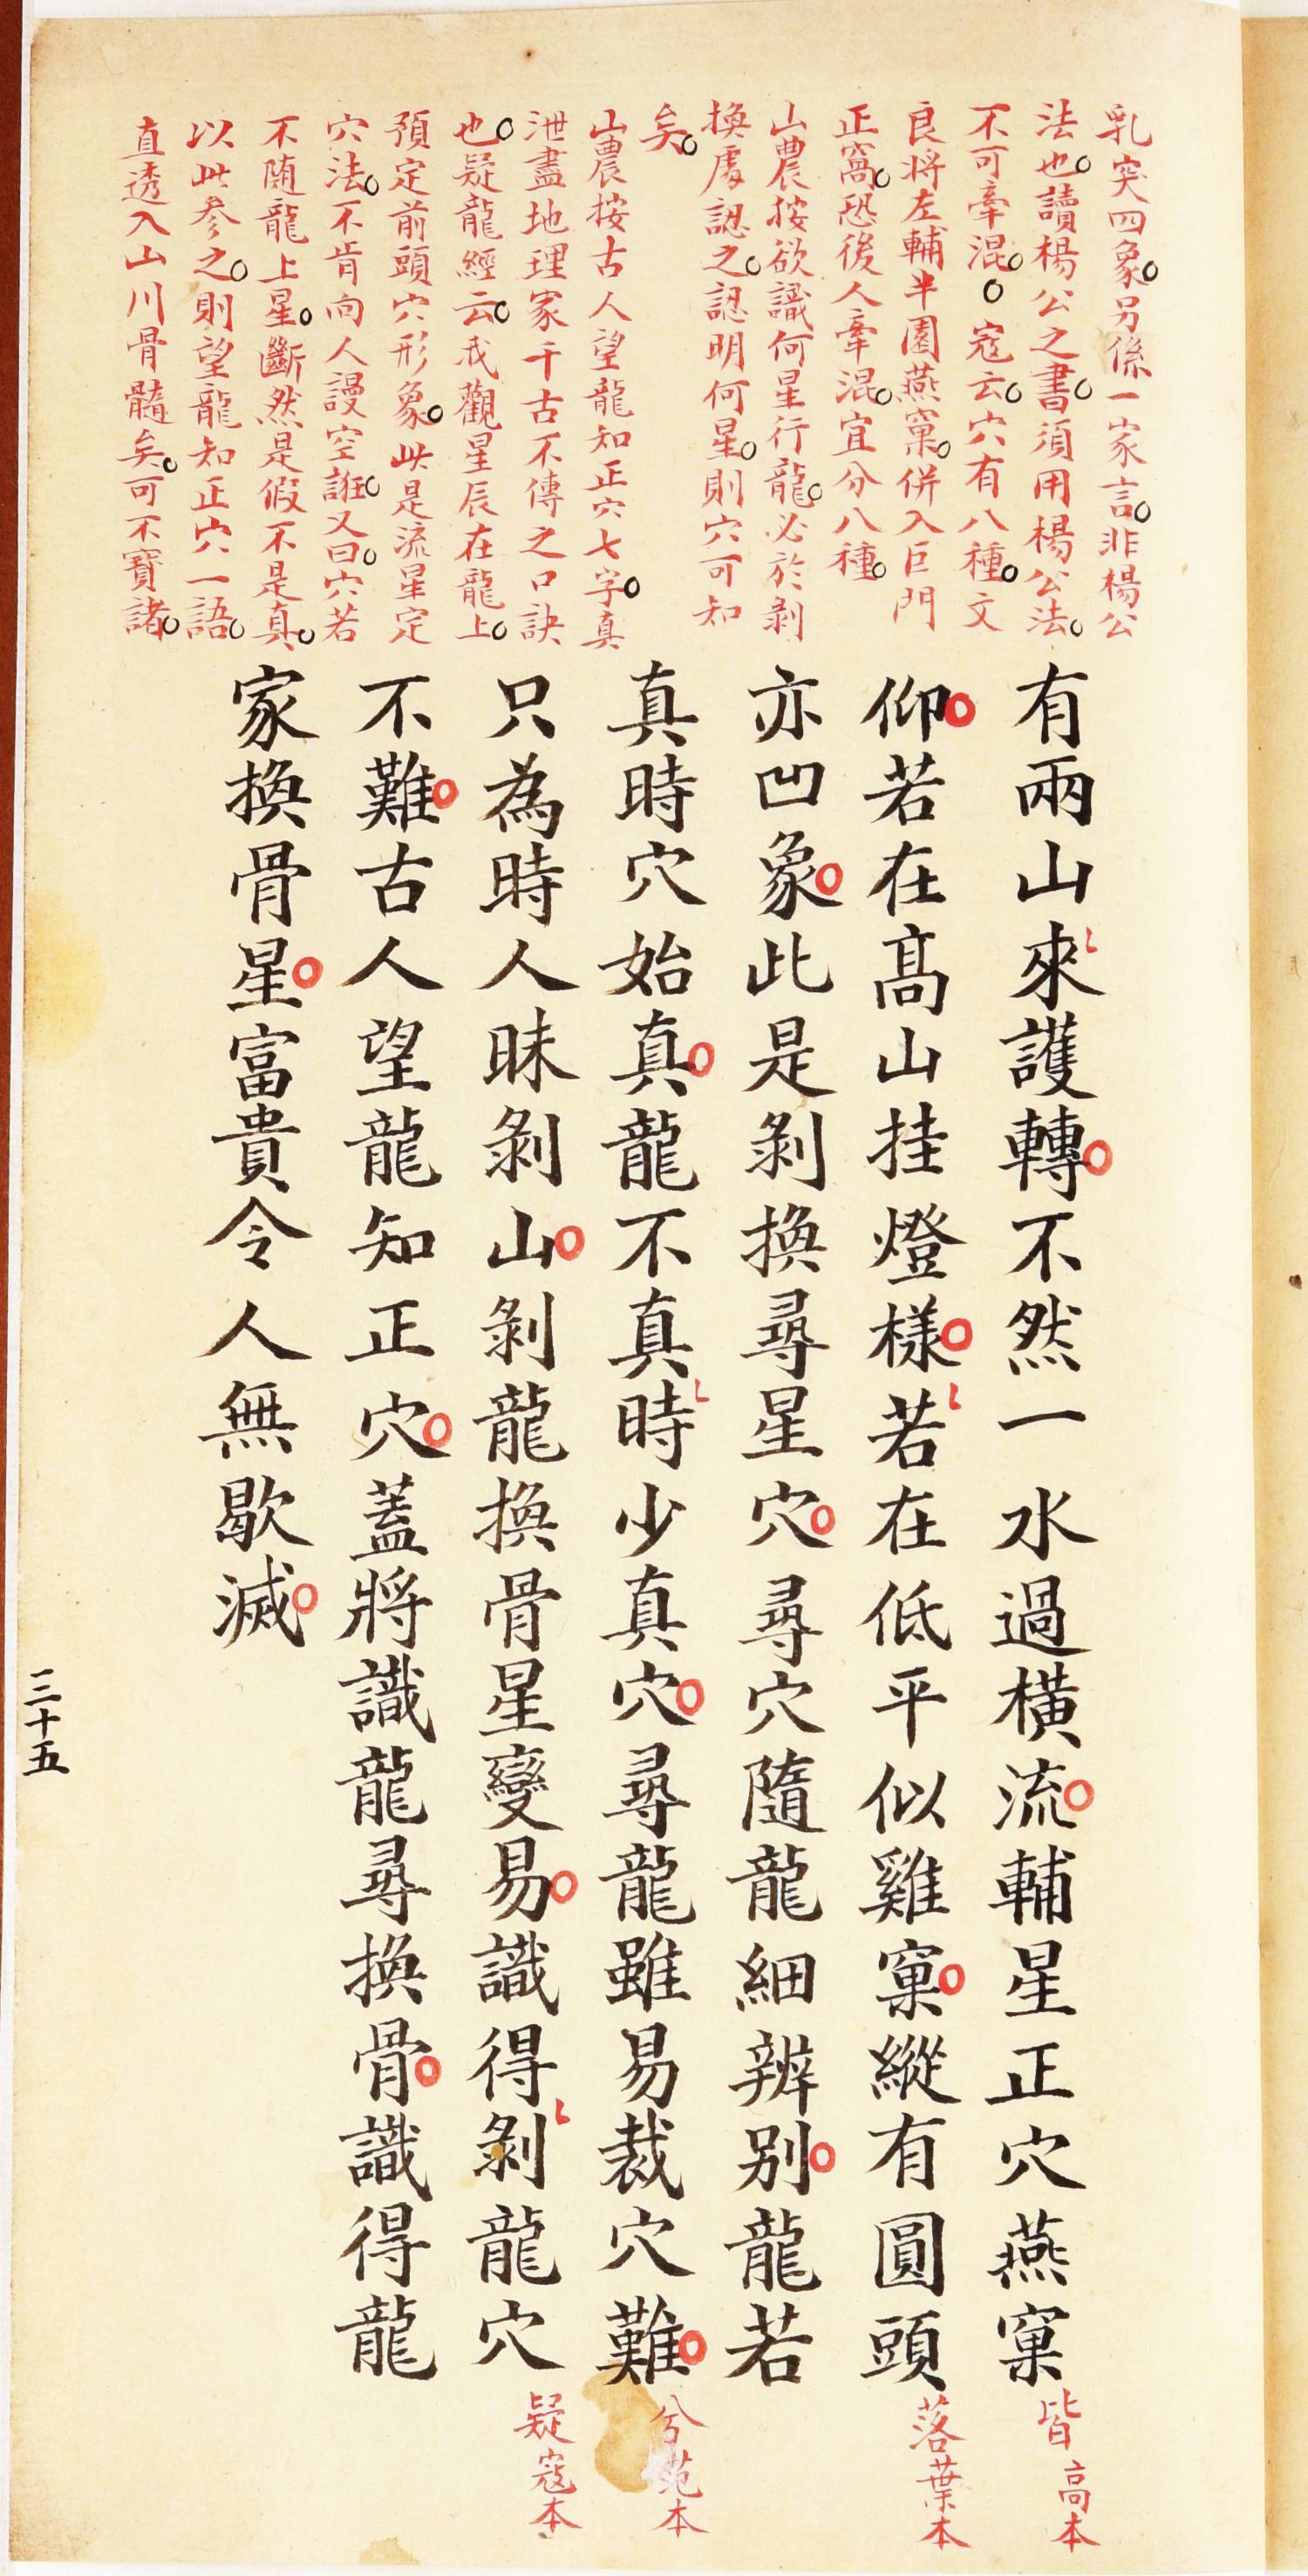 乳突四象另係一家言非楊公
法也讀楊公之書須用楊公法
不可牽混○寇云穴有八種文
良將左輔半園燕窠併入巨門
正窩恐後人牽混宜分八種
山農按欲識何星行龍必於剝
換處認之認明何星則穴可知
矣
山農按古人望龍知正穴七字真
泄盡地理家千古不傳之口訣
也疑龍經云我觀星辰在龍上
預定前頭穴形象此是流星定
穴法不肯向人謾空誑又曰穴若
不随龍上星斷然是假不是真
以此參之則望龍知正穴一語
直透入山川骨髓矣可不寶諸
有兩山來護轉不然一水過橫流輔星正穴燕窠
仰若在高山挂燈樣若在低平似雞窠縱有圓頭
亦凹象此是剝換尋星穴尋穴隨龍細辨别龍若
真時穴始真龍不真時少真穴尋龍雖易裁穴難
只為時人昧剝山剝龍換骨星變易識得剝龍穴
不難古人望龍知正穴蓋將識龍尋換骨識得龍
家換骨星富貴令人無歇滅
皆高本
落葉本
兮苑本
疑寇本
三十五